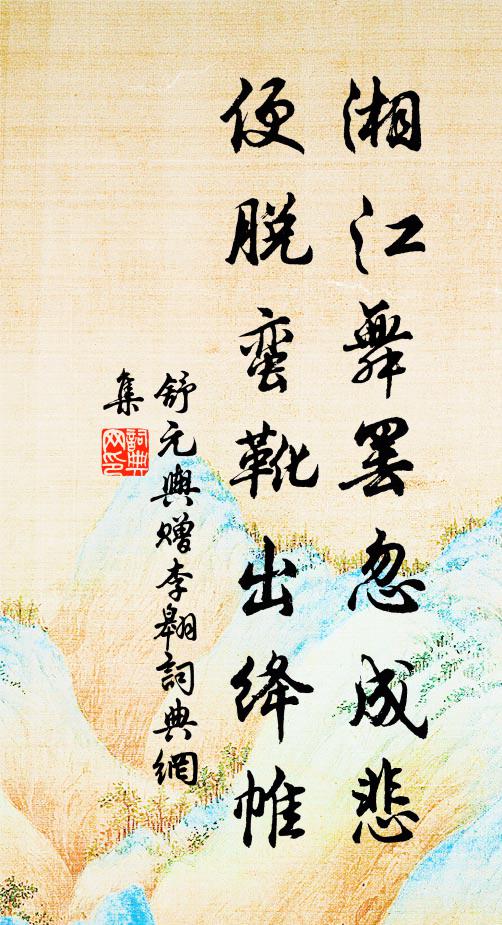 湘江舞罢忽成悲
便脱蛮靴出绛帷
舒元興赠李翱詞典網
集
詞典網印